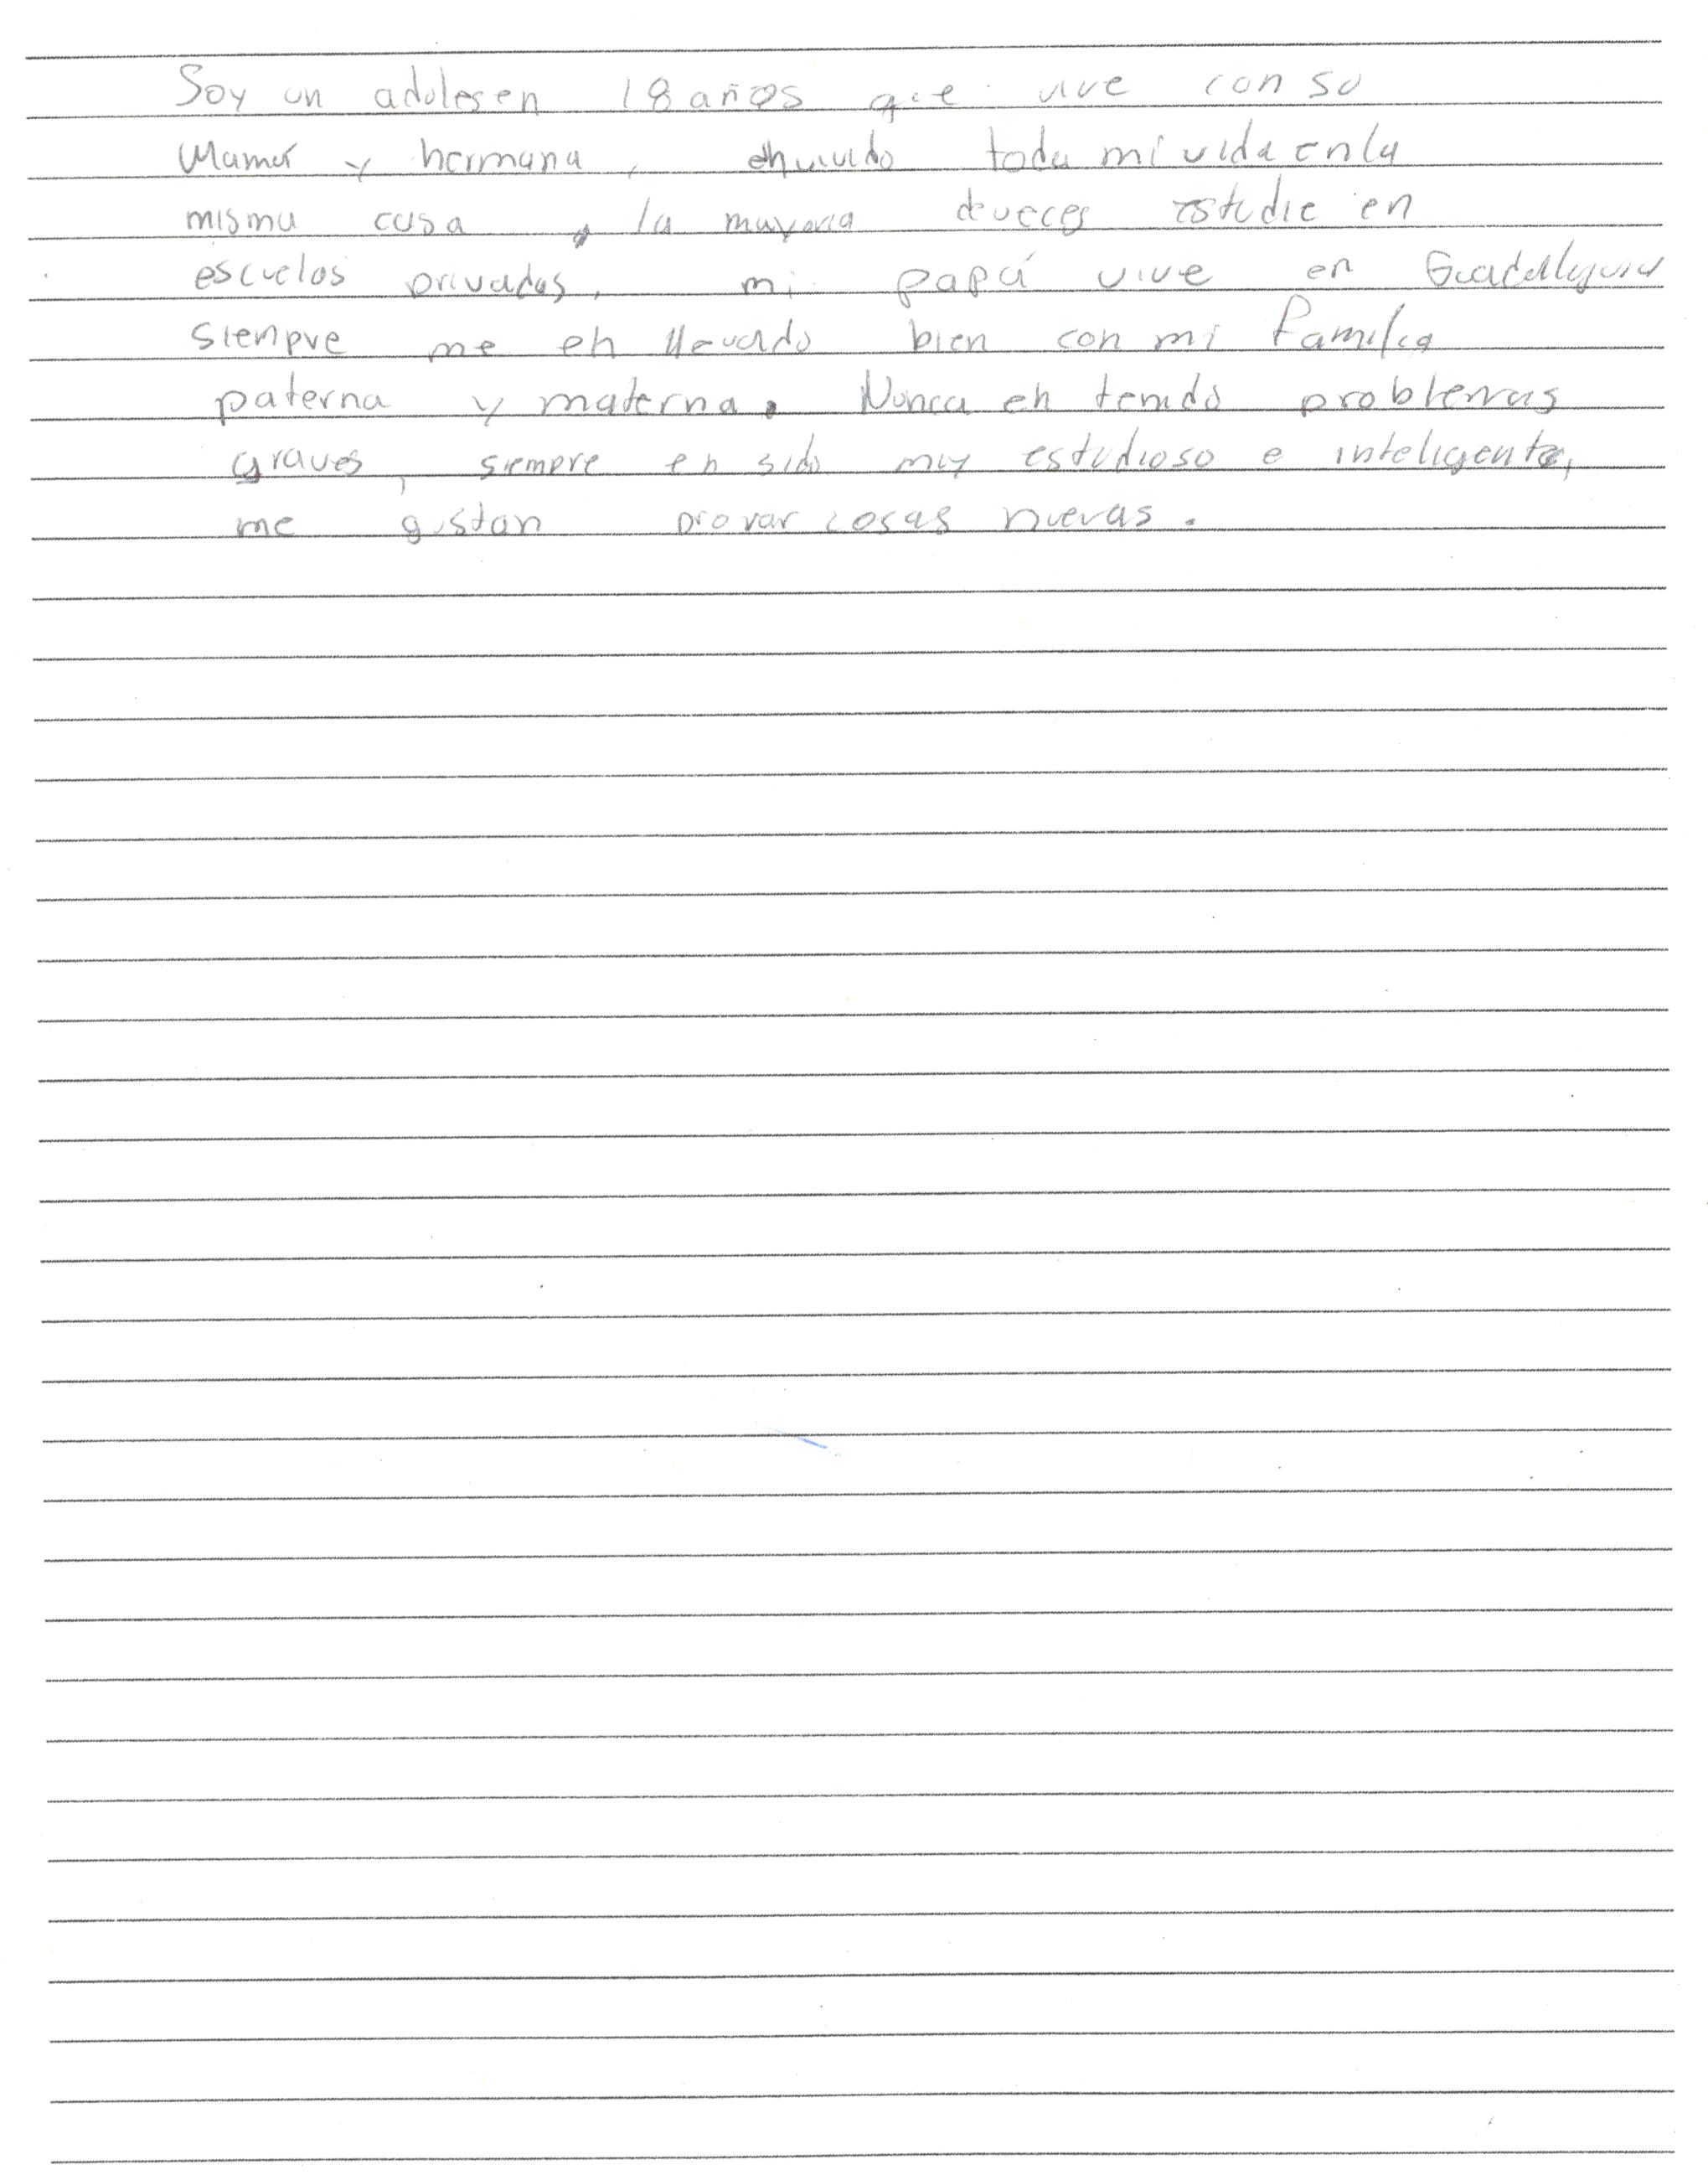 Soy un adolesen 18 años que vive con su
Mamá y hermana, eh vivido toda mi vida en la
misma casa, la mayoria de veces estudie en
escuelas privadas, mi papá vive en
siempre me eh llevado bien con mi familia
paterna y materna. Nunca eh tenido problemas
graves, siempre eh sido muy estudioso e inteligente,
me gustan provar cosas nuevas.